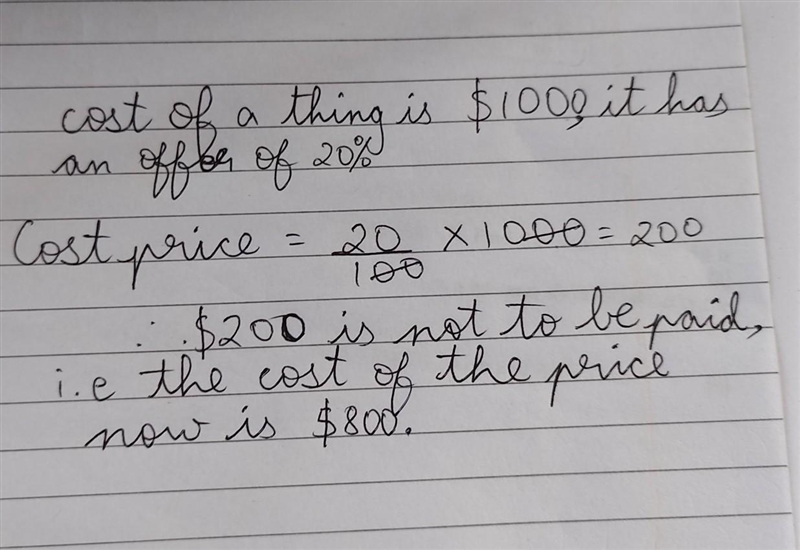 cost of a thing is $1000, it has
an offer of 20%
Cost price = 20/100 × 1000 = 200
∴ $200 is not to be paid,
i.e the cost of the price
now is $800.